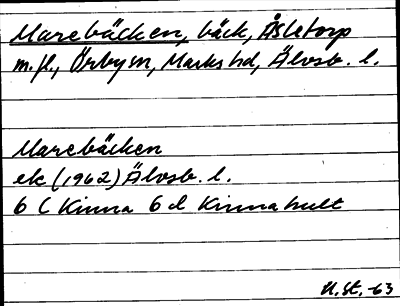 Marebäcken, bäck, Åsletorp
m.fl., Örby sn, Marks hd, Älvsb. l.
Marebäcken
ek (1962) Älvsb. l.
6 C Kinna 6 d Kinnahult
U.St. -63